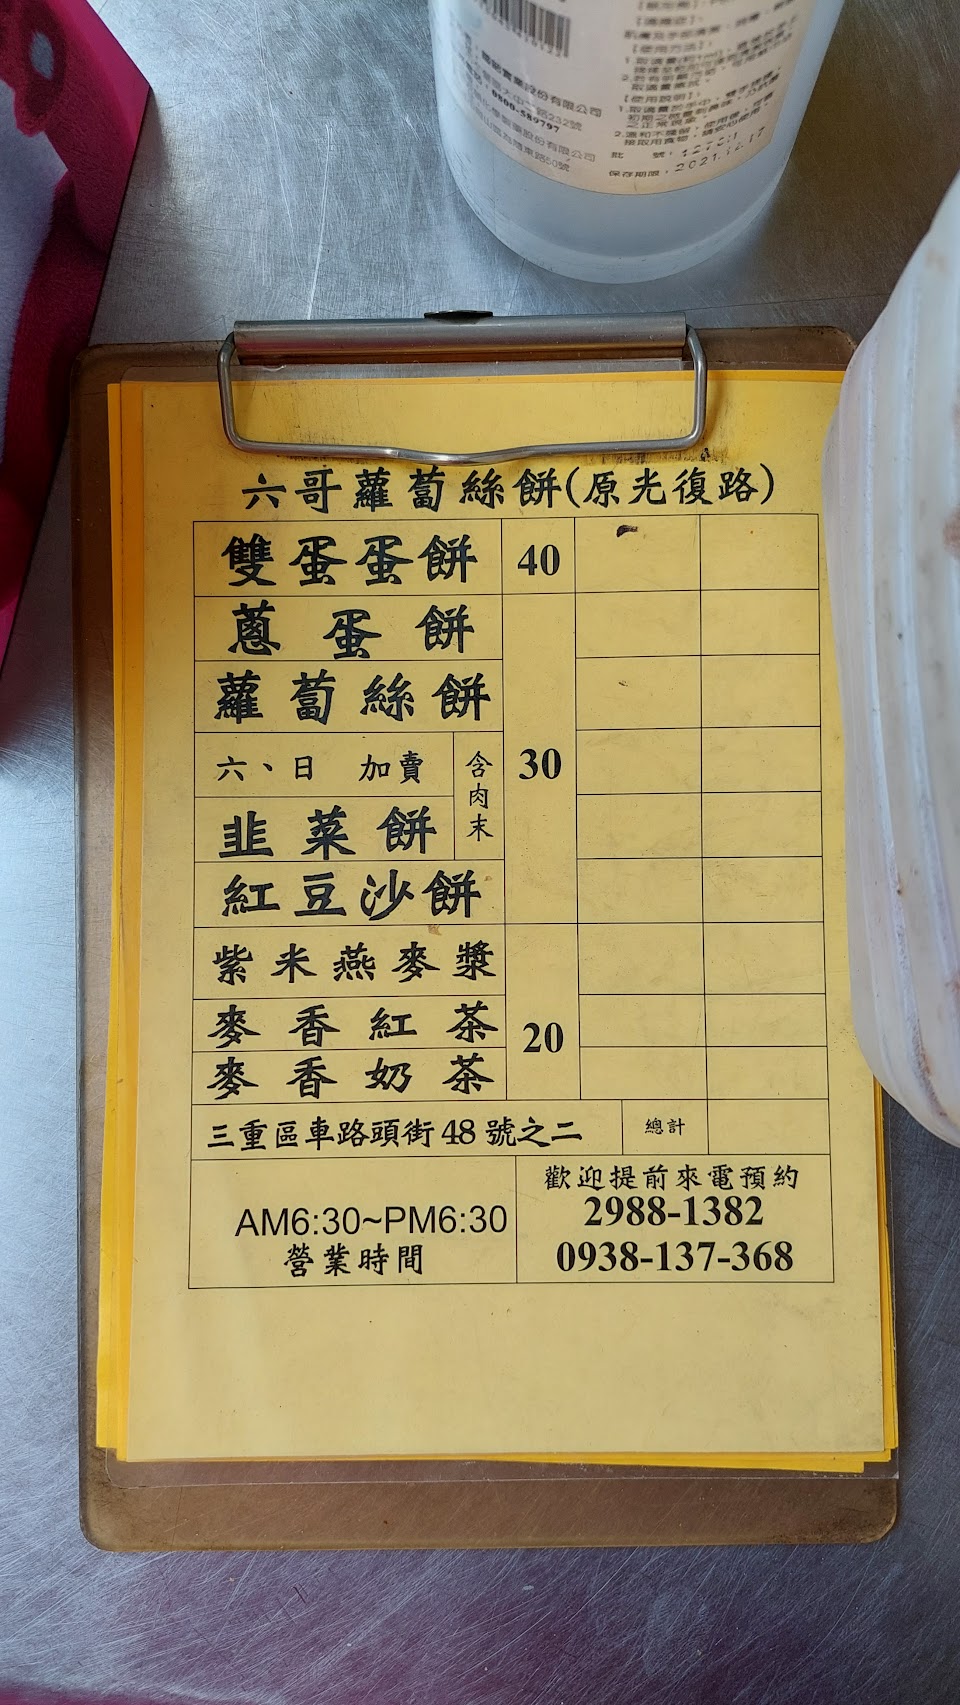 股份有限公司
0800-589797
2021.12.17
保存期限：
六哥蘿蔔絲餅(原光復路)
雙蛋蛋餅 40
蔥蛋餅
蘿蔔絲餅
六、日 加賣 含肉末 30
韭菜餅
紅豆沙餅
紫米燕麥漿
麥香紅茶 20
麥香奶茶
三重區車路頭街48號之二 總計
歡迎提前來電預約
2988-1382
AM6:30~PM6:30
營業時間
0938-137-368